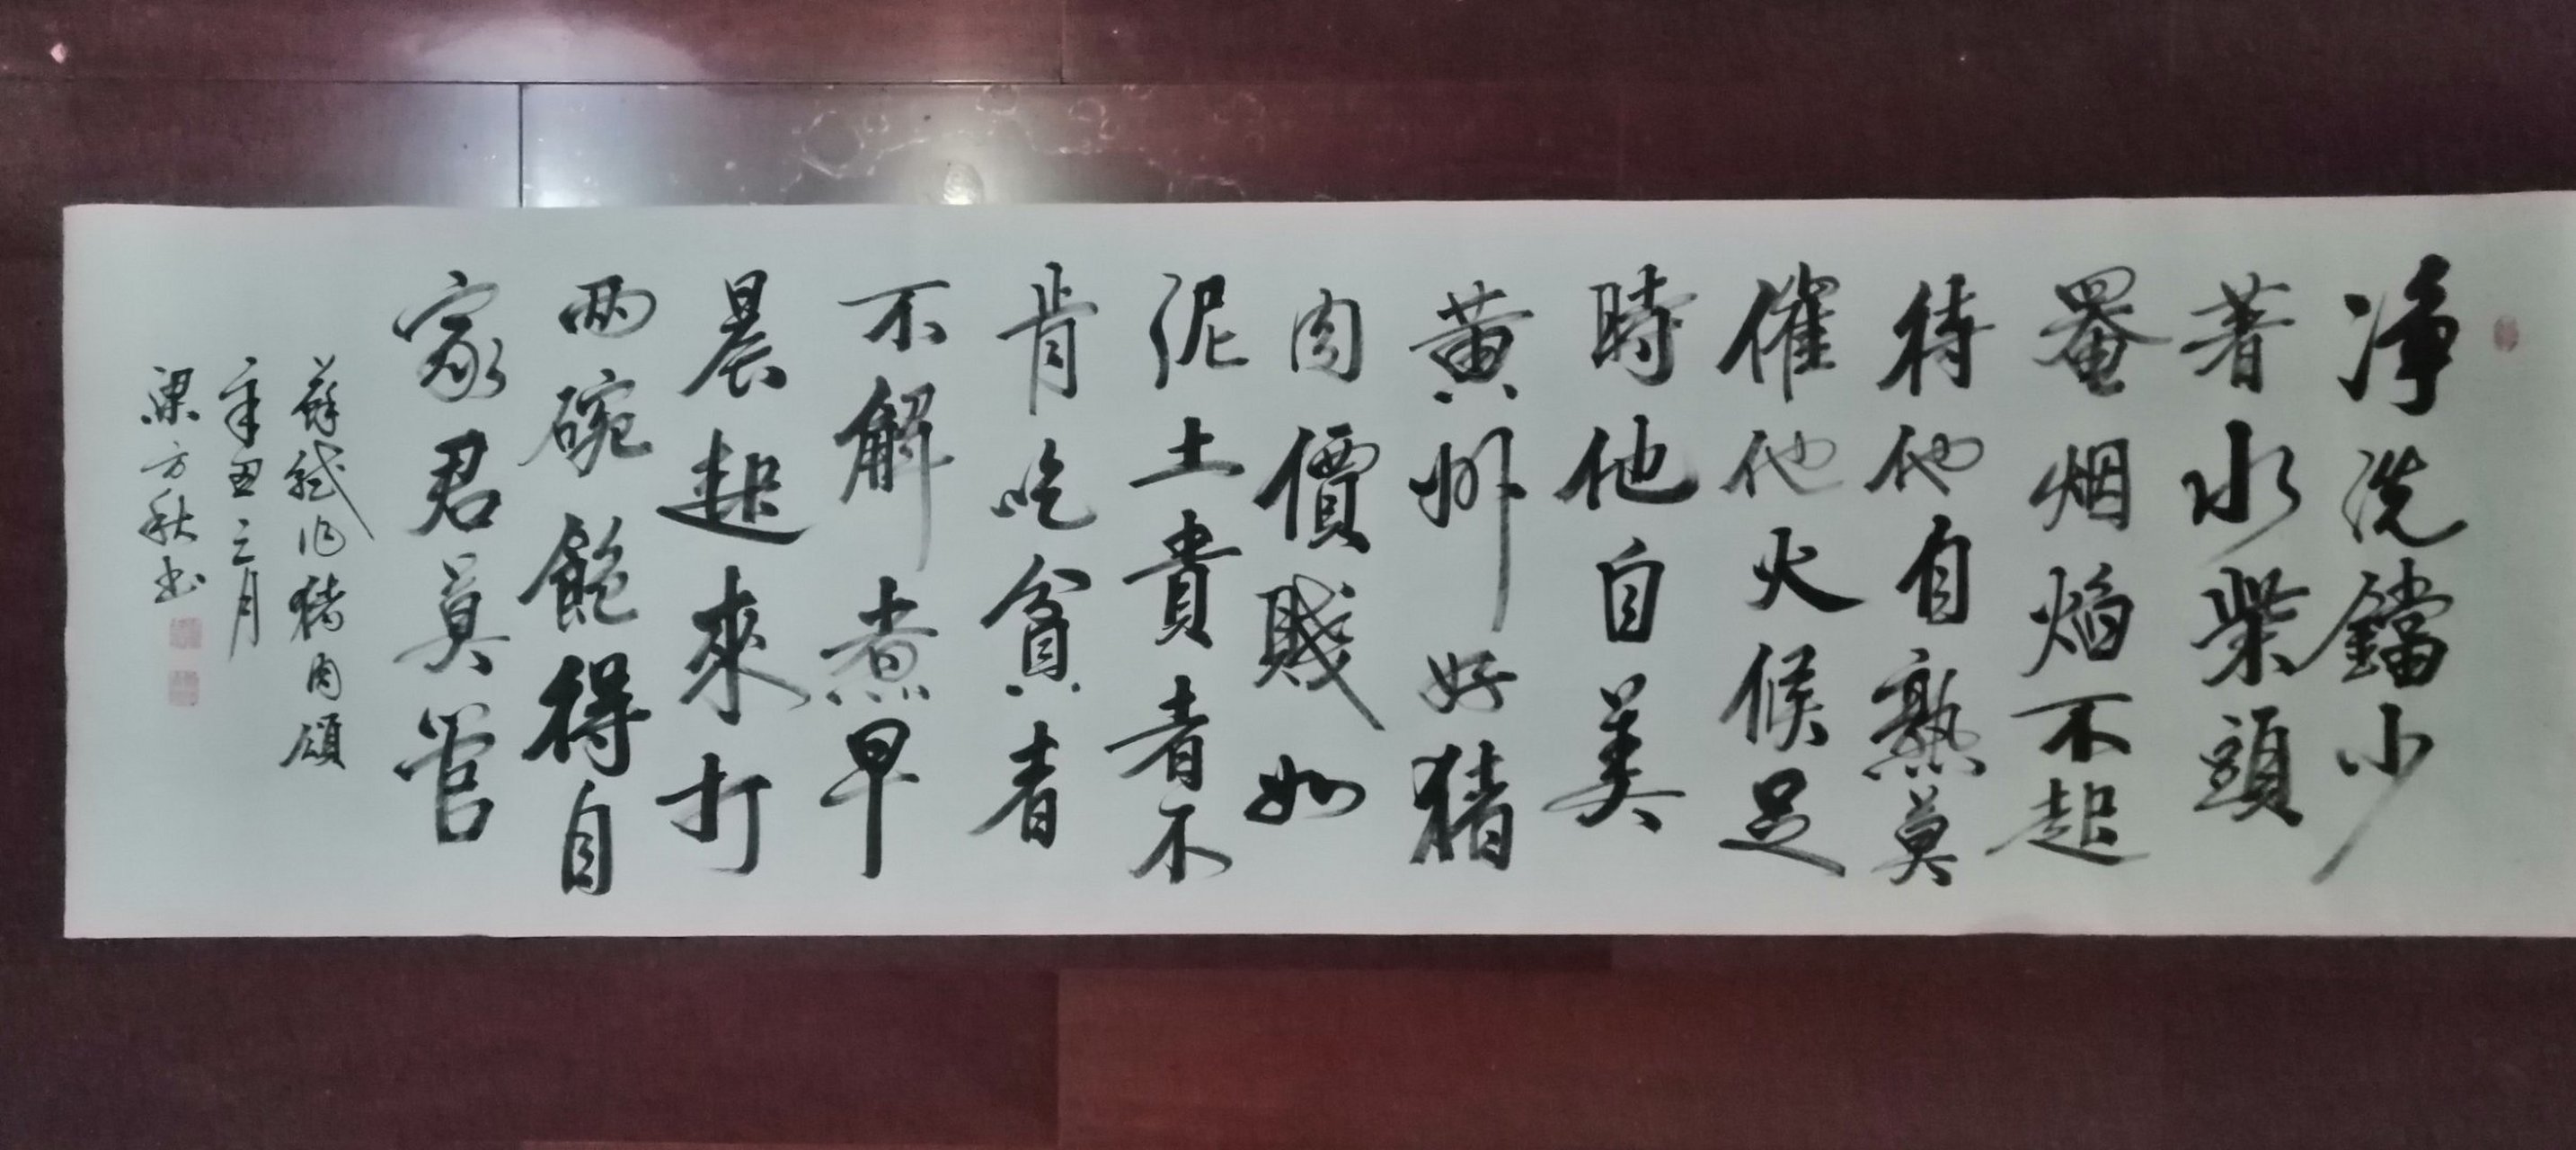 净洗鐺少
著水柴頭
罨烟焰不起
待他自熟莫
催他火候足
時他自美
黄州好猪
肉價賤如
泥土貴者不
肯吃貧者
不解煮早
晨起來打
两碗飽得自
家君莫管
蘇軾作猪肉頌
辛丑三月
梁方秋书